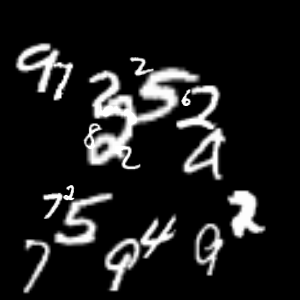 97
2 2 5 6 2
8 2 2 4
7 2 5
7 9 4 9 2